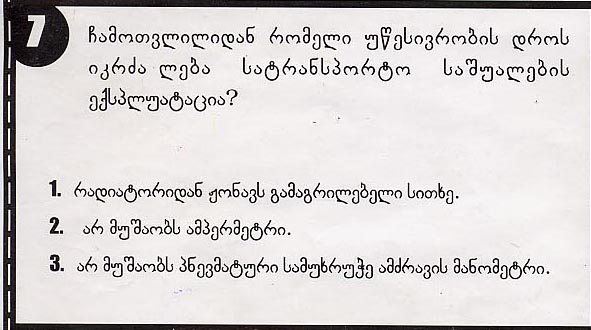 7
ჩამოთვლილიდან რომელი უწესივრობის დროს
იკრძა ლება სატრანსპორტო საშუალების
ექსპლუატაცია?
1. რადიატორიდან ჟონავს გამაგრილებელი სითხე.
2. არ მუშაობს ამპერმეტრი.
3. არ მუშაობს პნევმატური სამუხრუჭე ამძრავის მანომეტრი.